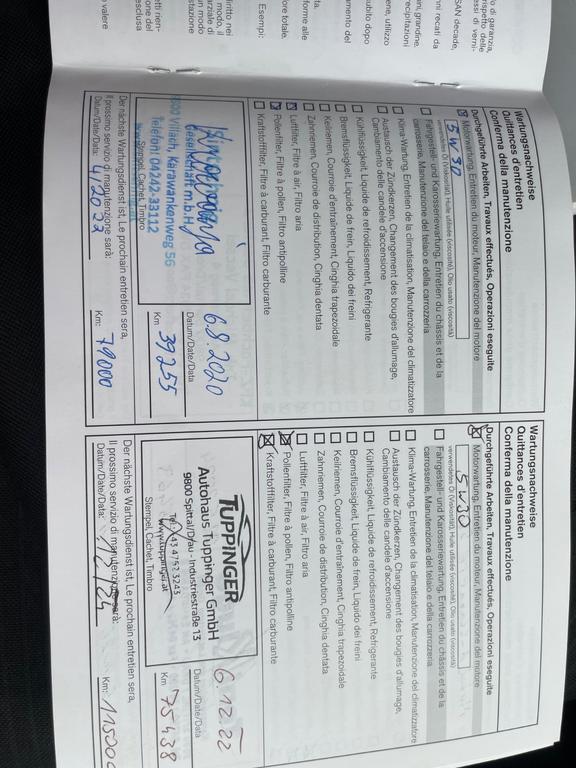 Wartungsnachweise
Quittances d'entretien
Conferma della manutenzione
Durchgeführte Arbeiten, Travaux effectués, Operazioni eseguite
Motorwartung, Entretien du moteur, Manutenzione del motore
5W30
verwendetes Öl (Viskosität), Huile utilisée (viscosité), Olio usato (viscosità)
Fahrgestell- und Karosseriewartung, Entretien du châssis et de la
carrosserie, Manutenzione del telaio e della carrozzeria
Klima-Wartung, Entretien de la climatisation, Manutenzione del climatizzatore
Austausch der Zündkerzen, Changement des bougies d'allumage,
Cambiamento delle candele d'accensione
Kühlflüssigkeit, Liquide de refroidissement, Refrigerante
Bremsflüssigkeit, Liquide de frein, Liquido dei freini
Keilriemen, Courroie d'entraînement, Cinghia trapezoidale
Zahnriemen, Courroie de distribution, Cinghia dentata
Luftfilter, Filtre à air, Filtro aria
Pollenfilter, Filtre à pollen, Filtro antipolline
Kraftstofffilter, Filtre à carburant, Filtro carburante
Gesellschaft m.b.H.
9500 Villach, Karawankenweg 56
Telefon: 04242-33112
Stempel, Cachet, Timbro
6.8.2020
Datum/Date/Data
39255
Km
Der nächste Wartungsdienst ist, Le prochain entretien sera,
Il prossimo servizio di manutenzione sarà:
Datum/Date/Data: 4/2022 Km: 79000
Wartungsnachweise
Quittances d'entretien
Conferma della manutenzione
Durchgeführte Arbeiten, Travaux effectués, Operazioni eseguite
Motorwartung, Entretien du moteur, Manutenzione del motore
5W30
verwendetes Öl (Viskosität), Huile utilisée (viscosité), Olio usato (viscosità)
Fahrgestell- und Karosseriewartung, Entretien du châssis et de la
carrosserie, Manutenzione del telaio e della carrozzeria
Klima-Wartung, Entretien de la climatisation, Manutenzione del climatizzatore
Austausch der Zündkerzen, Changement des bougies d'allumage,
Cambiamento delle candele d'accensione
Kühlflüssigkeit, Liquide de refroidissement, Refrigerante
Bremsflüssigkeit, Liquide de frein, Liquido dei freini
Keilriemen, Courroie d'entraînement, Cinghia trapezoidale
Zahnriemen, Courroie de distribution, Cinghia dentata
Luftfilter, Filtre à air, Filtro aria
Pollenfilter, Filtre à pollen, Filtro antipolline
Kraftstofffilter, Filtre à carburant, Filtro carburante
TUPPINGER
Autohaus Tuppinger GmbH
9800 Spittal/Drau - Industriestraße 13
www.tuppinger.at
Stempel, Cachet, Timbro
6.12.22
Datum/Date/Data
75438
Km
Der nächste Wartungsdienst ist, Le prochain entretien sera,
Il prossimo servizio di manutenzione sarà:
Datum/Date/Data: Km: 115000